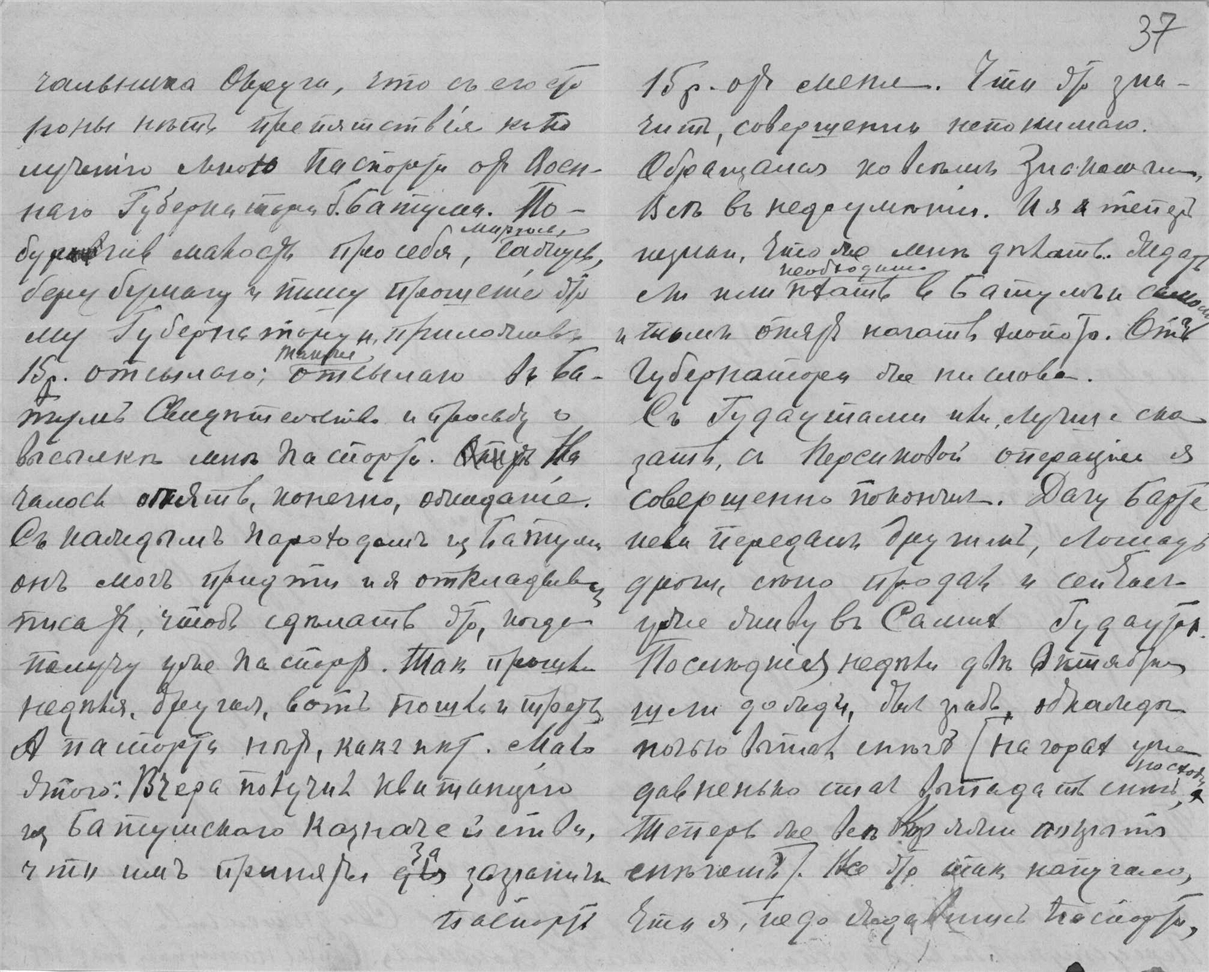 37
чальника Округа, что съ его сто
роны нѣтъ препятствія къ по
лученію мною паспорта отъ Воен-
наго Губернатора г. Батума. По-
бурчив малость про себя,
беру бумагу и пишу прошеніе это
му Губернатору и, приложивъ
15р. отсылаю; также отсылаю въ Ба-
тумъ Свидѣтельство и просьбу о
высылкѣ мнѣ паспорта. На
чалось опять, конечно, ожиданіе.
Съ каждымъ пароходомъ изъ Батума
онъ могъ придти и я откладывалъ
писать, чтобъ сдѣлать это, когда
получу уже паспортъ. Так прошла
недѣля, другая, вотъ пошла и третья
А паспорта нѣтъ, какъ нѣт. Мало
этого: Вчера получилъ квитанцію
изъ Батумскаго Казначейства,
что имъ приняты за заграничн
паспортъ
15р. отъ меня. Что это зна-
читъ, совершенно непонимаю.
Обращался ко всѣмъ Знакомымъ,
Всѣ въ недоумѣніи. И я теперь
незнаю, что же мнѣ дѣлать. Ждать
ли или необходимо ѣхать в Батумъ и самому
и тамъ опять начать хлопоты. Отъ
Губернатора же ни слова.
Съ Гудаутами или, лучше ска
зать, съ Персиковой операціей я
совершенно покончил. Дачу Барте
нева передалъ другимъ, лошадь
дроги, сѣно продалъ и сейчасъ
уже живу въ Самих Гудаутах.
Послѣдніяя недѣли двѣ Октября
шли дожди, был градъ, однажды
ночью выпалъ снѣгъ (на горах уже
давненько стал выпадать снѣгъ,
теперь же всѣ покрыты
снѣгомъ). Все это так напугало,
что я, не дождавшись паспорта,